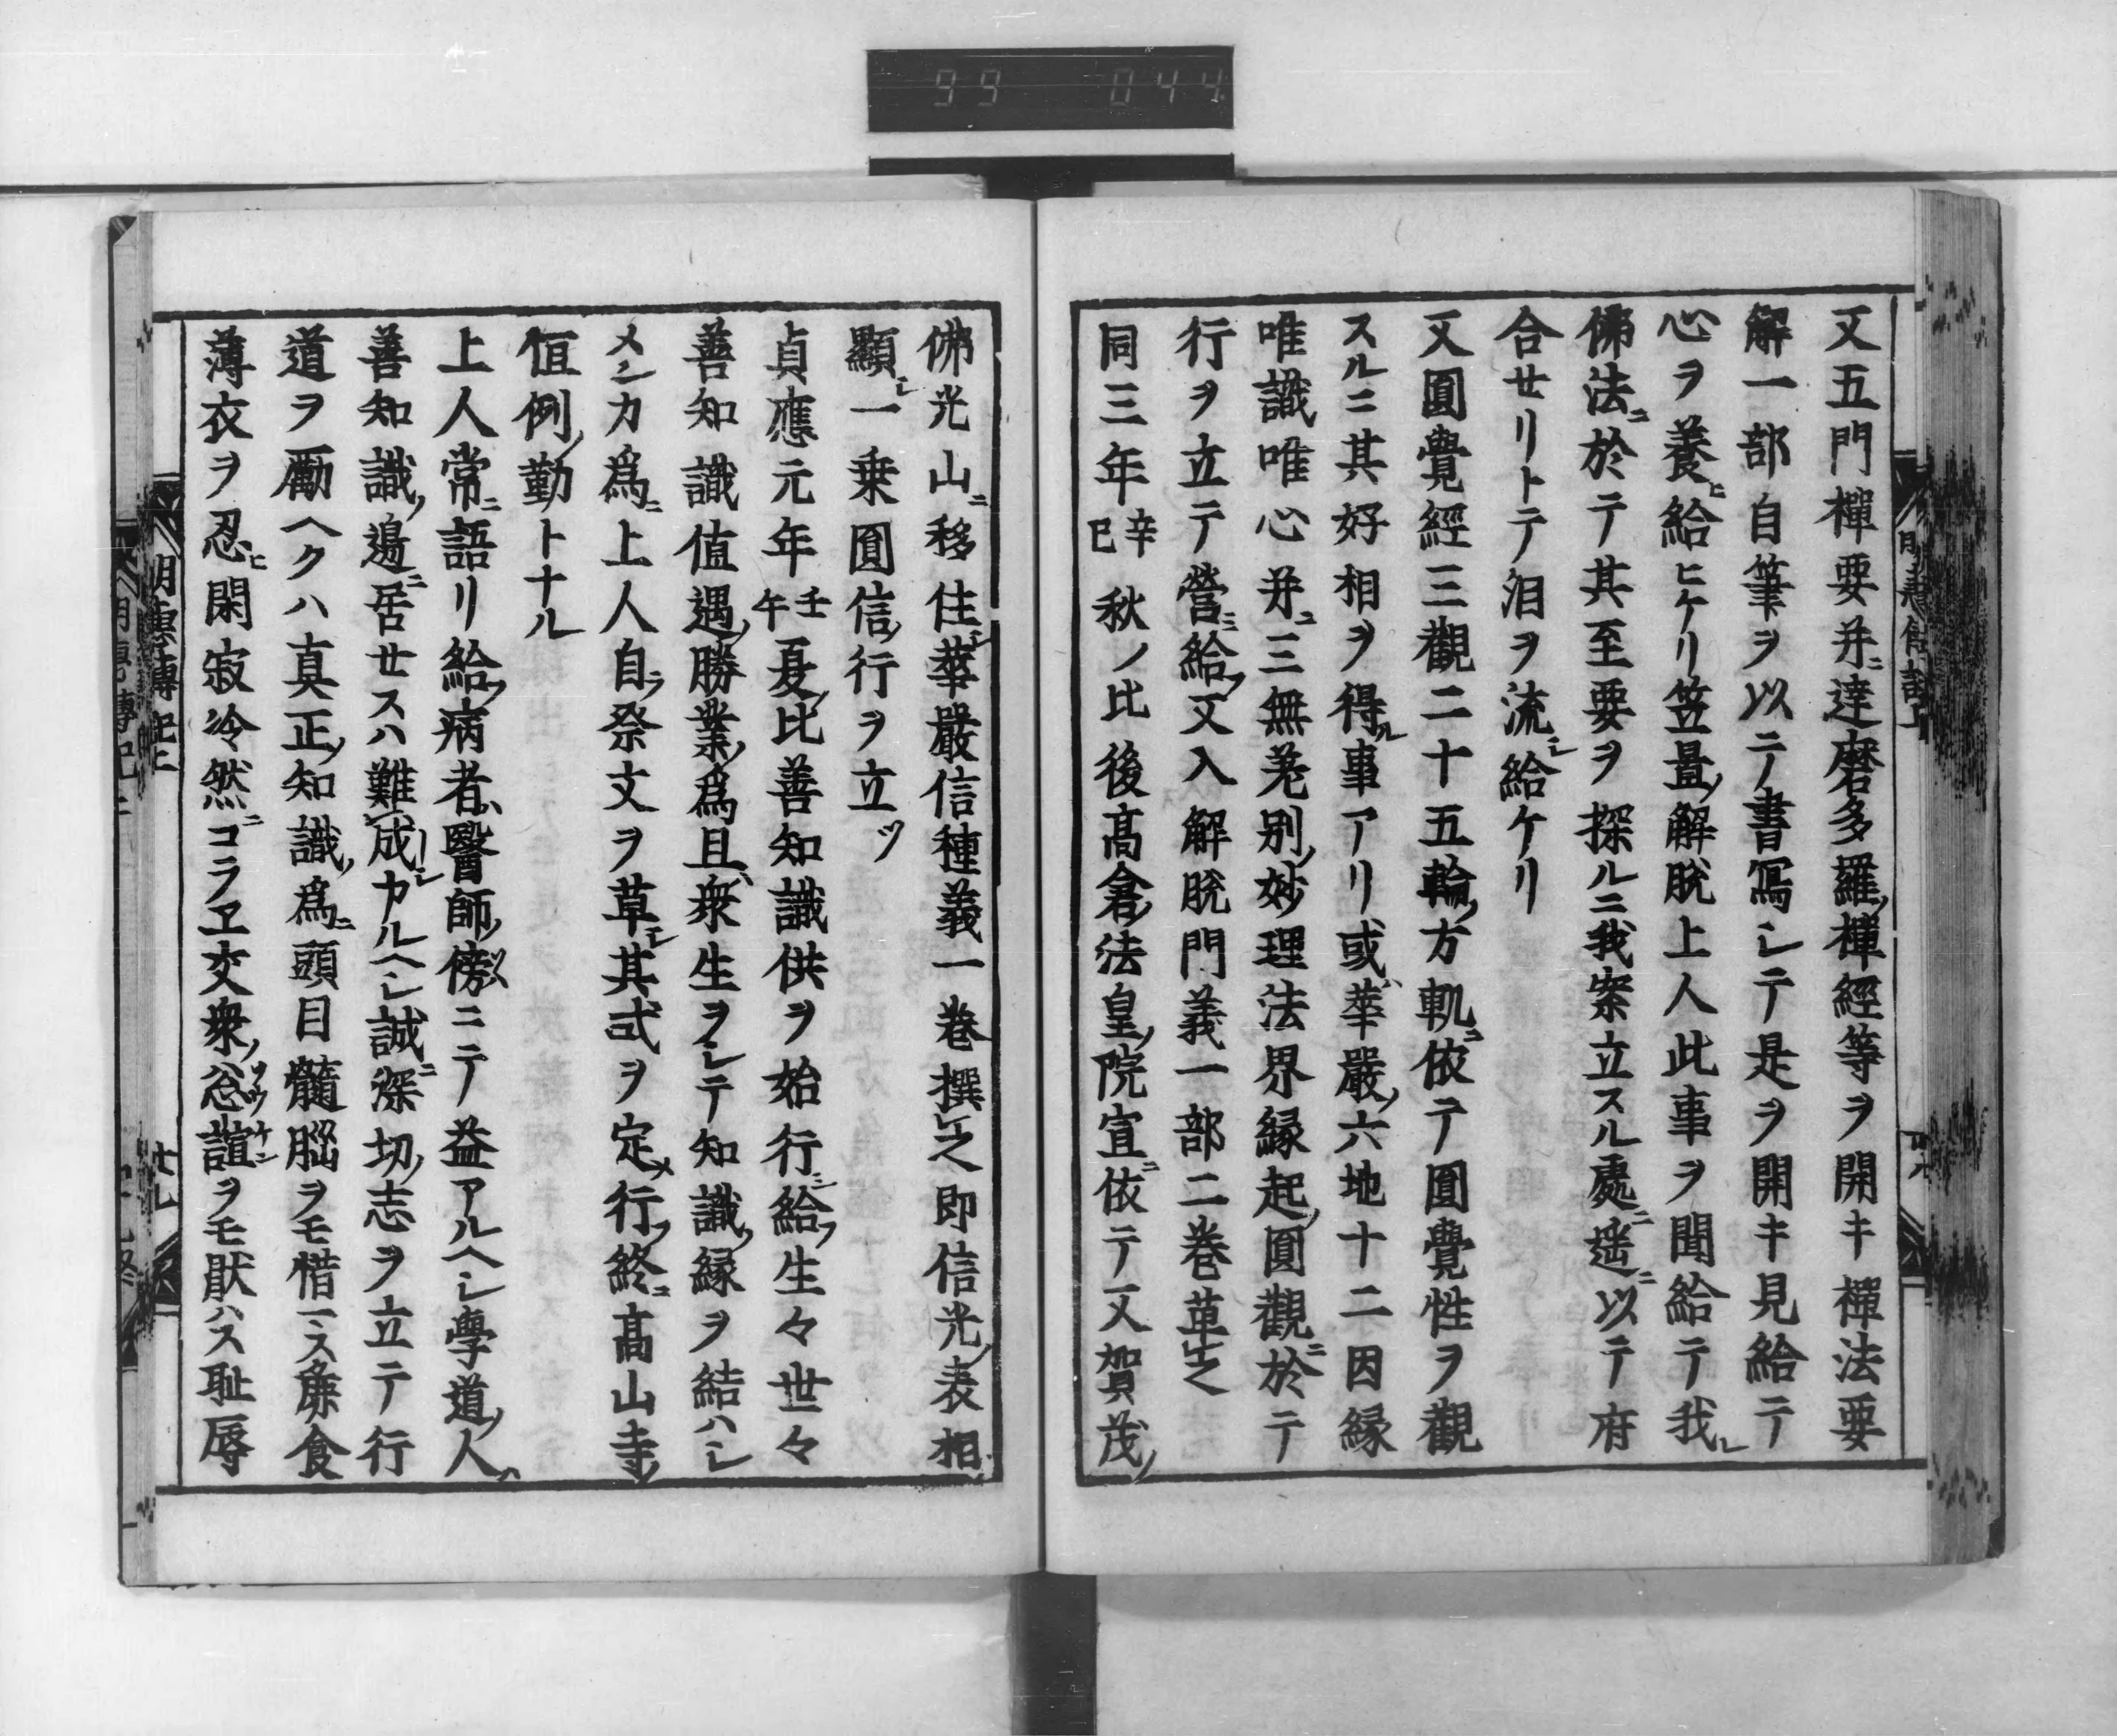 99 044
又五門禪要并ニ達磨多羅ノ禪經等ヲ開キ禪法要
解一部自筆ヲ以テ書寫シテ是ヲ開キ見給テ
心ヲ養ヒ給ヒケリ笠置ノ解脱上人此事ヲ聞給テ我レ
佛法ニ於テ其至要ヲ探ルニ我案立スル處ニ遥ニ以テ府
合せリトテ泪ヲ流シ給ケリ
又圓覺經三觀二十五輪ノ方軌ニ依テ圓覺性ヲ觀
スルニ其好相ヲ得ル事アリ或ハ華嚴ノ六地十二因縁
唯識唯心并ニ三無差別ノ妙理法界縁起ノ圓觀ニ於テ
行ヲ立テ營ニ給フ又入解脱門義一部二巻草之
同三年辛巳秋ノ比後高倉ノ法皇ノ院宣ニ依テ又賀茂ノ
佛光山ニ移住シ華嚴信種義一巻撰之即信光ノ表相ヲ
顯シ一乗圓信ノ行ヲ立ツ
貞應元年壬午夏ノ比善知識供ヲ始行シ給フ生々世々
善知識値遇ノ勝業ノ爲且ハ衆生ヲシテ知識ノ縁ヲ結ハシ
メンカ爲ニ上人自ラ祭文ヲ草シ其式ヲ定メ行フ終ニ高山寺ノ
恒例ノ勤トナル
上人常ニ語リ給フ病者ハ醫師ノ傍ニテ益アルヘシ學道ノ人ハ
善知識ノ邊ニ居せスハ難成カルヘシ誠ニ深切ノ志ヲ立テ行
道ヲ勵ヘクハ真正ノ知識ノ爲ニ頭目髓腦ヲモ惜ス麁食
薄衣ヲ忍ヒ閑寂冷然ニコラヱ交衆ノ忩諠ヲモ厭ハス耻辱
明惠傳記上
廿九